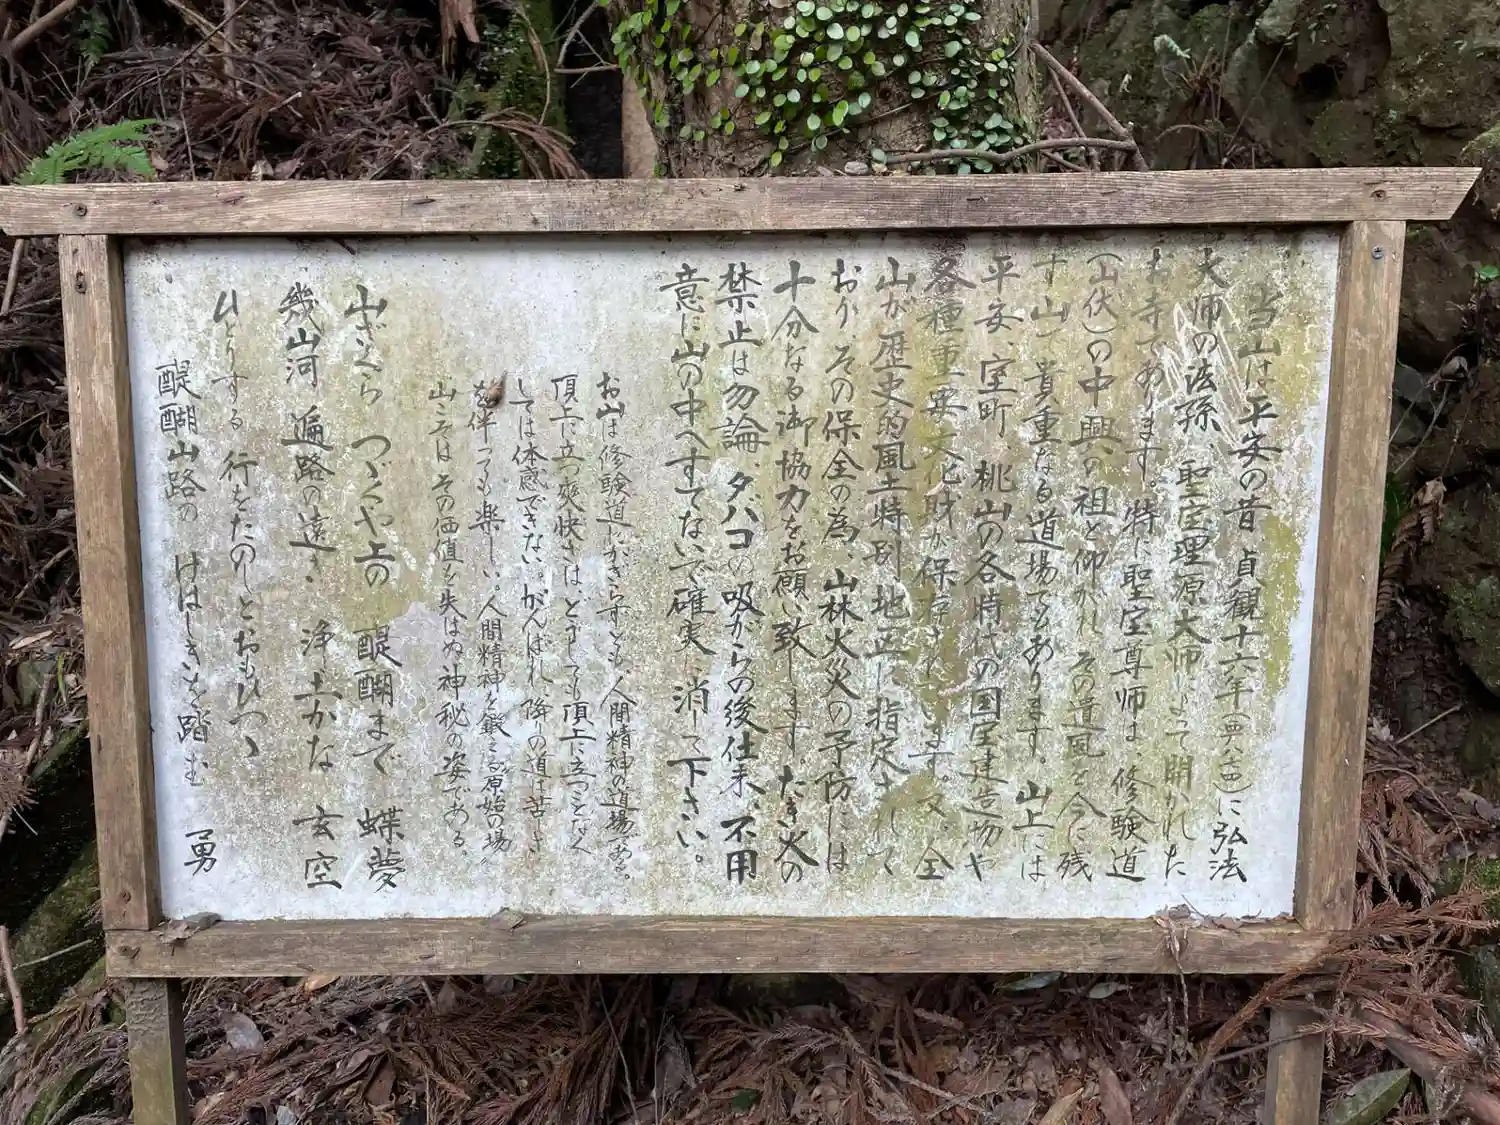 当山は平安の昔貞観十六年(西八七四)に弘法
大师の法孫、聖宝理源大师によって開かれた
お寺であります。特に聖宝尊师は、修験道
(山伏)の中興の祖と仰がれその道風を今に残
す山で貴重なる道場でもあります。山上には
平安、室町、桃山の各時代の国宝建造物や
各種重要文化財が保存されています。又、全
山が歴史的風土特別地正に指定されて
おり、その保全の為、山林火災の予防には
十分なる御協力をお願い致します。たき火の
禁止は勿論、タバコの吸がらの後仕末、不用
意に山の中へすてないで確実に消して下さい。
お山は修験道にかぎらずとも、人間精神の道場である。
頂上に立つ爽快さは、どうしても頂上に立つことなく
しては体感できない。がんばれ、降りの道は苦しさ
を伴っても楽しい。人間精神を鍛える原始の場
山こそはその価値を失はぬ神秘の姿である。
山ざくら つゞくや上の 醍醐まで 蝶夢
幾山河 遍路の遠さ 浄土かな 玄空
ひとりする 行をたのしとおもひつゝ
醍醐山路の けはしきを踏む 勇